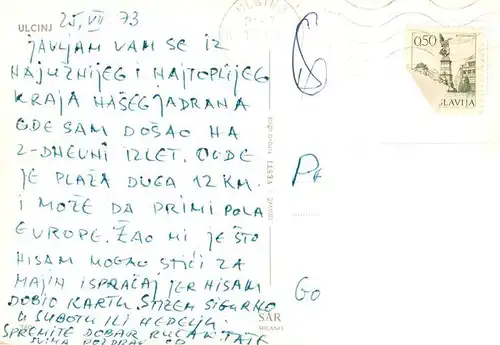 25, VII 73
ULCINJ
JAVLJAM VAM SE IZ
NAJUŽNIJEG I NAJTOPLIJEG
KRAJA NAŠEG JADRANA
GDE SAM DOŠAO NA
2-DNEVNI IZLET. OVDE
JE PLAŽA DUGA 12 KM.
I MOŽE DA PRIMI POLA
EUROPE. ŽAO MI JE ŠTO
NISAM MOGAO STIĆI ZA
MAJIN ISPRAĆAJ JER NISAM
DOBIO KARTU. STIŽEM SIGURNO
U SUBOTU ILI NEDELJU.
SPREMITE DOBAR RUČAK
SVIMA POZDRAV OD
VESTI
0,50
SLAVIJA
GO
SAR
MILANO